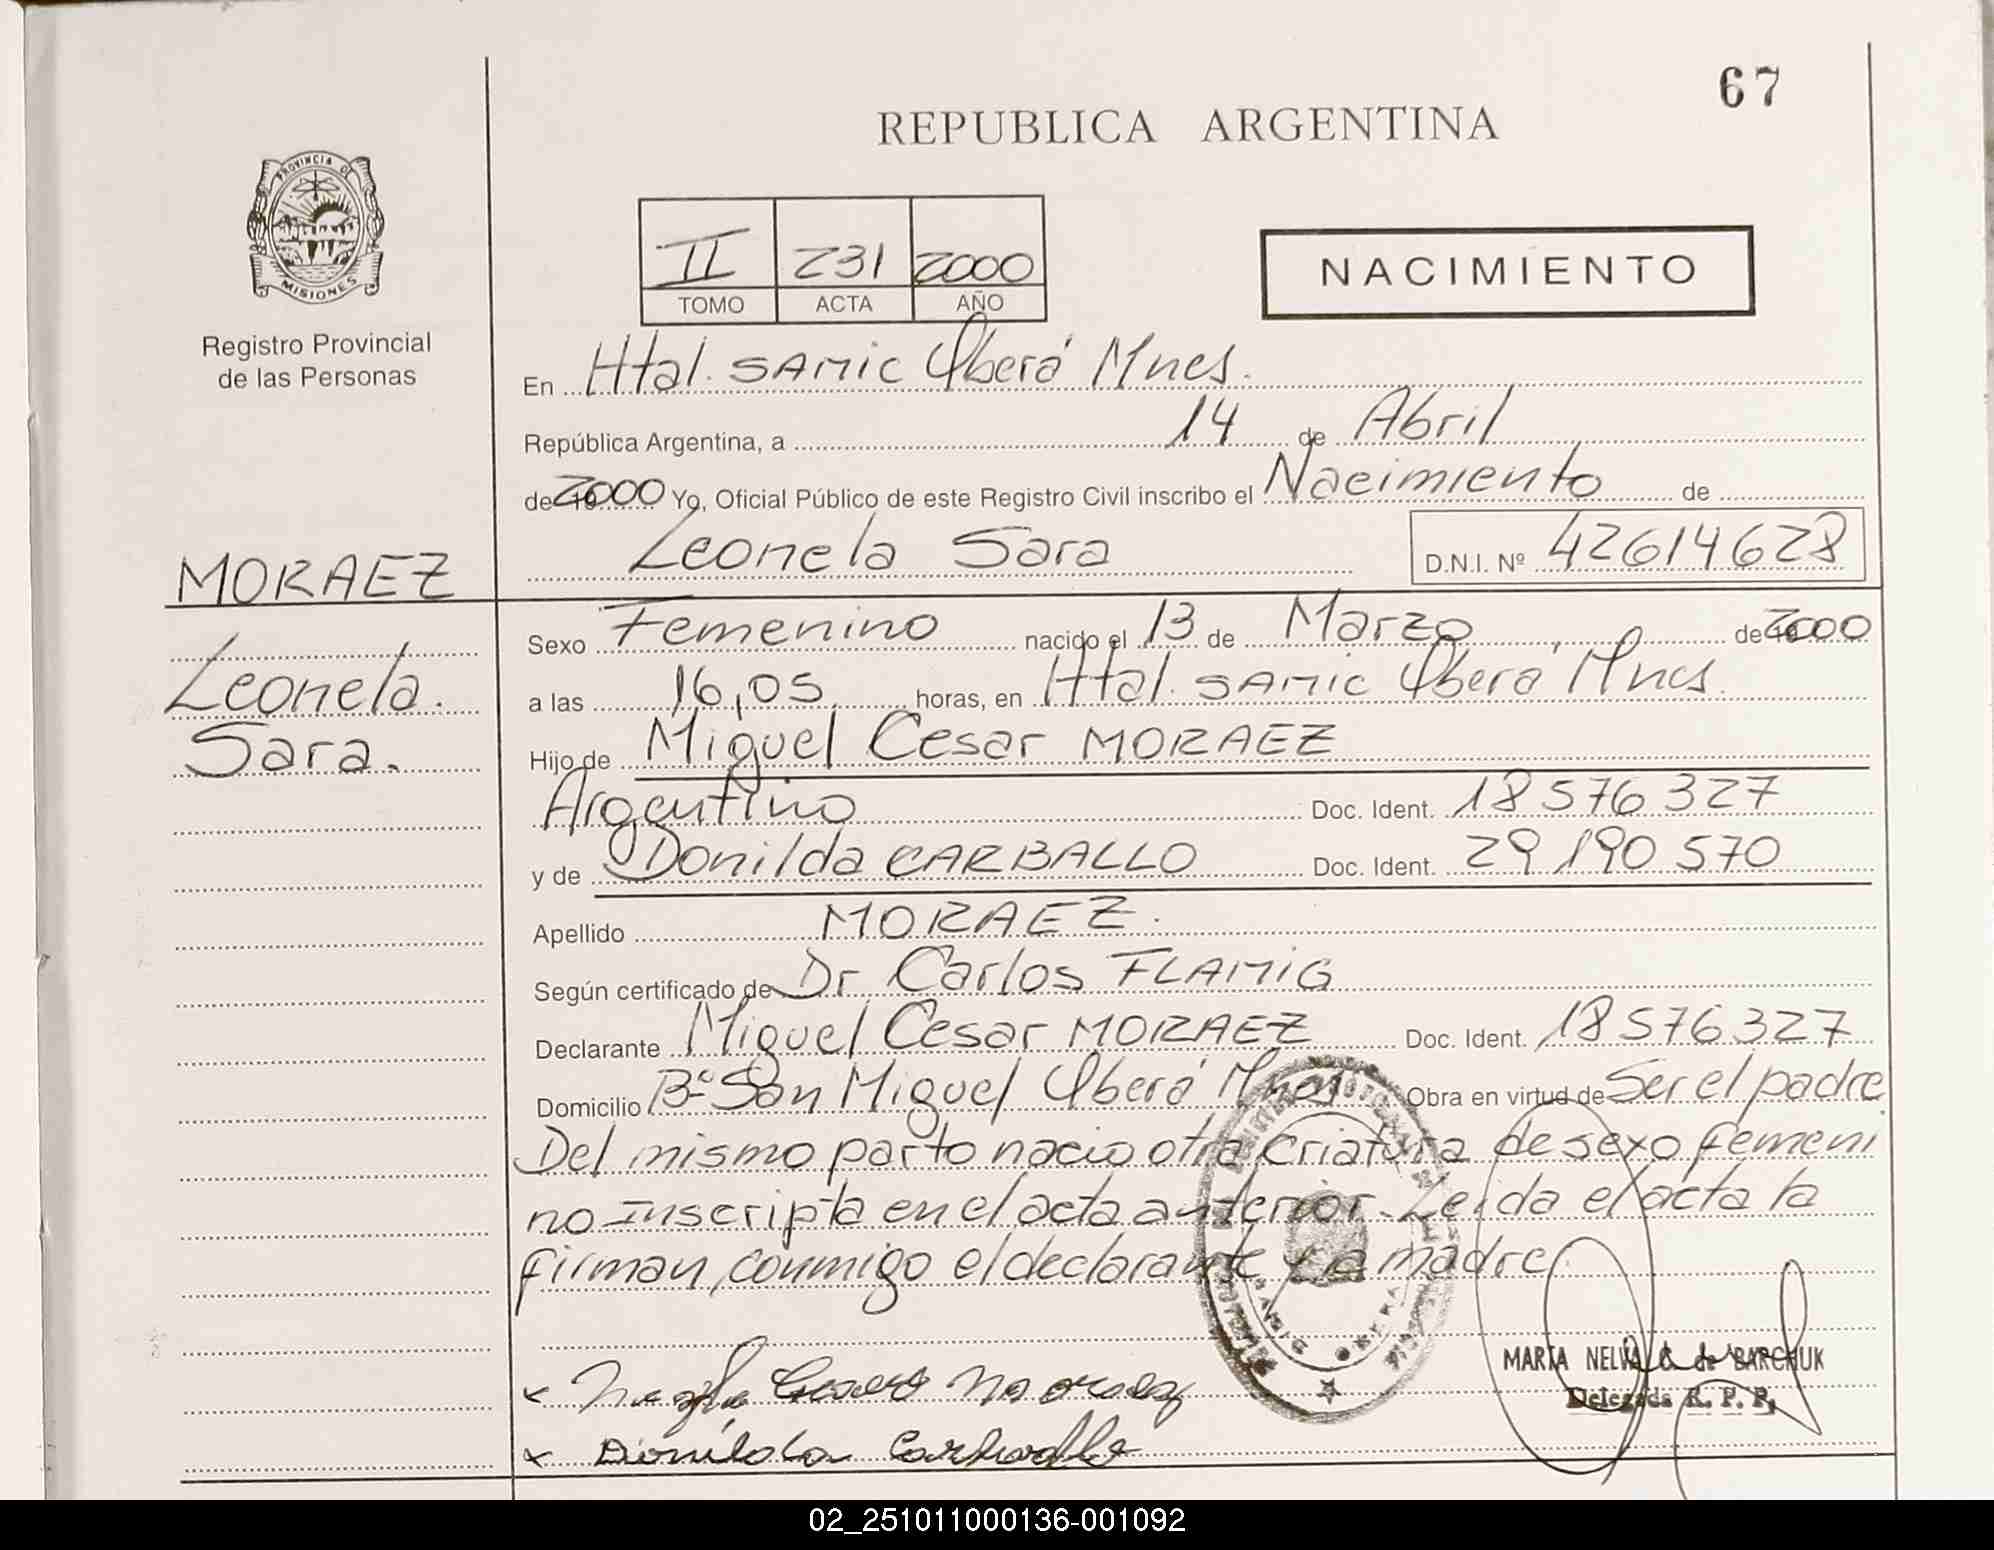 67
REPUBLICA ARGENTINA
PROVINCIA DE
MISIONES
Registro Provincial
de las Personas
II 231 2000
TOMO ACTA AÑO
NACIMIENTO
En Htal. SAMIC Oberá Mnes.
República Argentina, a 14 de Abril
de 2000 Yo, Oficial Público de este Registro Civil inscribo el Nacimiento de
Leonela Sara D.N.I. Nº 42614628
MORAEZ
Leonela.
Sara.
Sexo Femenino nacido el 13 de Marzo de 2000
a las 16,05 horas, en Htal. SAMIC Oberá Mnes.
Hijo de Miguel Cesar MORAEZ
Argentino Doc. Ident. 18576327
y de Donilda CARBALLO Doc. Ident. 29190570
Apellido MORAEZ.
Según certificado de Dr Carlos FLAMIG
Declarante Miguel Cesar MORAEZ Doc. Ident. 18576327
Domicilio Bº San Miguel Oberá Mnes Obra en virtud de Ser el padre
Del mismo parto nacio otra criatura de sexo femeni
no inscripta en el acta anterior. Leida el acta la
firman conmigo el declarante y la madre
x Cesar Moraez
x Donilda Carballo
MARIA NELVA G. de BARCHUK
Delegada R. P. P.
02_251011000136-001092